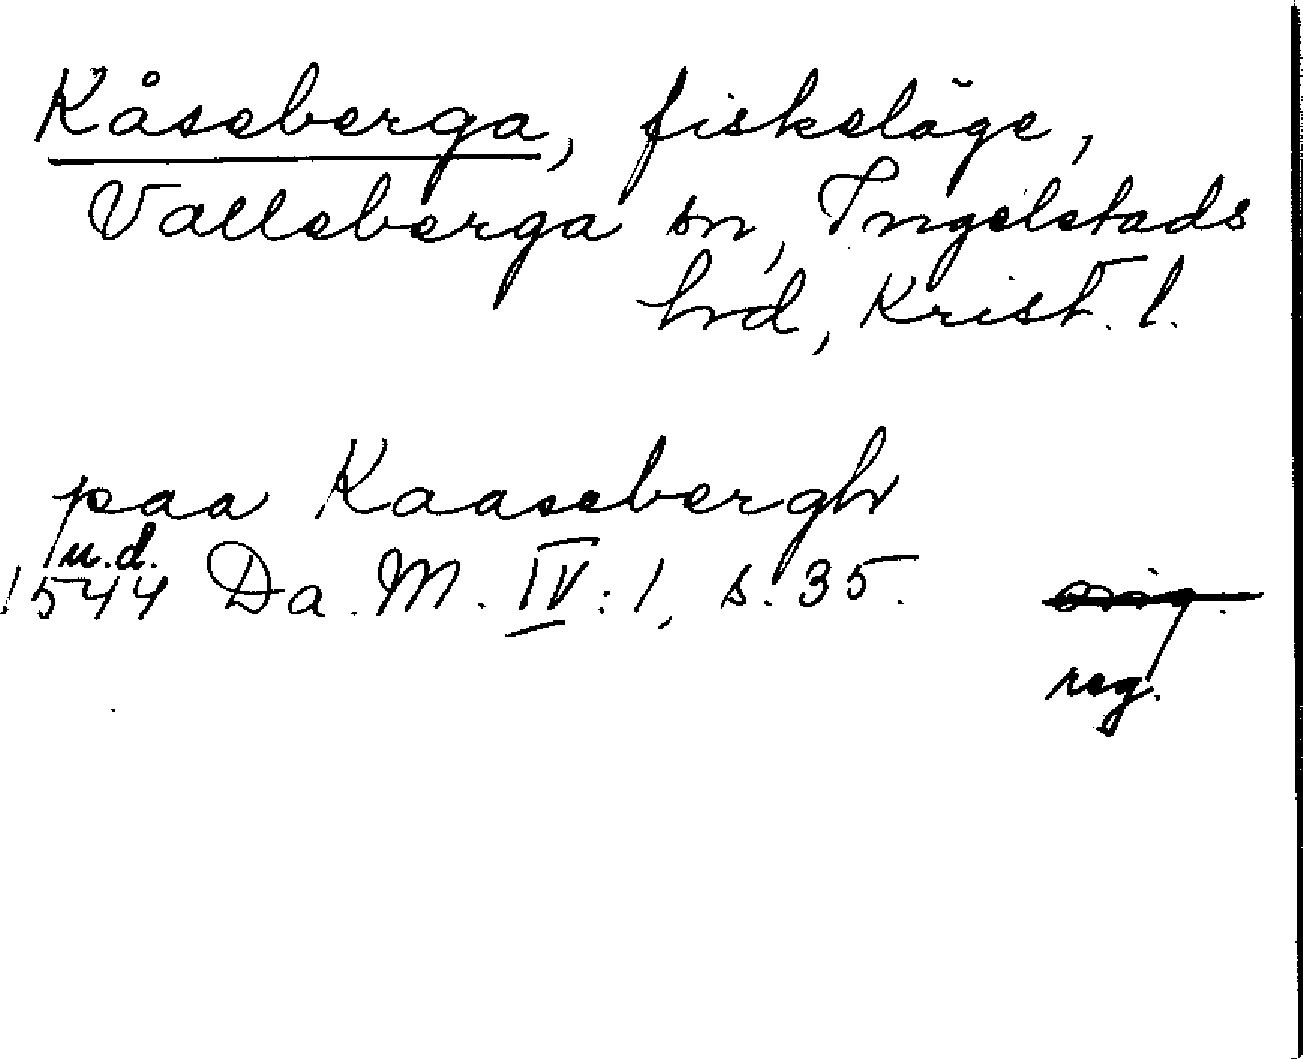 Kåseberga, fiskeläge,
Valleberga sn, Ingelstads
hd, Krist. l.
paa Kaasebergh
u.d.
1544 Da. M. IV: 1, s. 35.
orig.
reg.